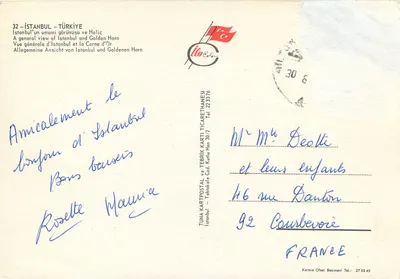 32 - İSTANBUL - TÜRKİYE
İstanbul'un umumi görünüşü ve Haliç
A general view of Istanbul and Golden Horn
Vue générale d'Istanbul et la Corne d'Or
Allgemeine Ansicht von Istanbul und Goldenen Horn
30 6
Amicalement le
bonjour d'Istanbul
Bons baisers
Rosette Maurice
TUNA KARTPOSTAL ve TEBRİK KARTI TİCARETHANESİ
İstanbul - Tahtakale Cad. Kutlu Han 30/2 Tel: 22 33 76
Mr Mme Deotte
et leurs enfants
46 rue Danton
92 Courbevoie
FRANCE
Keskin Ofset Basımevi Tel.: 27 02 45